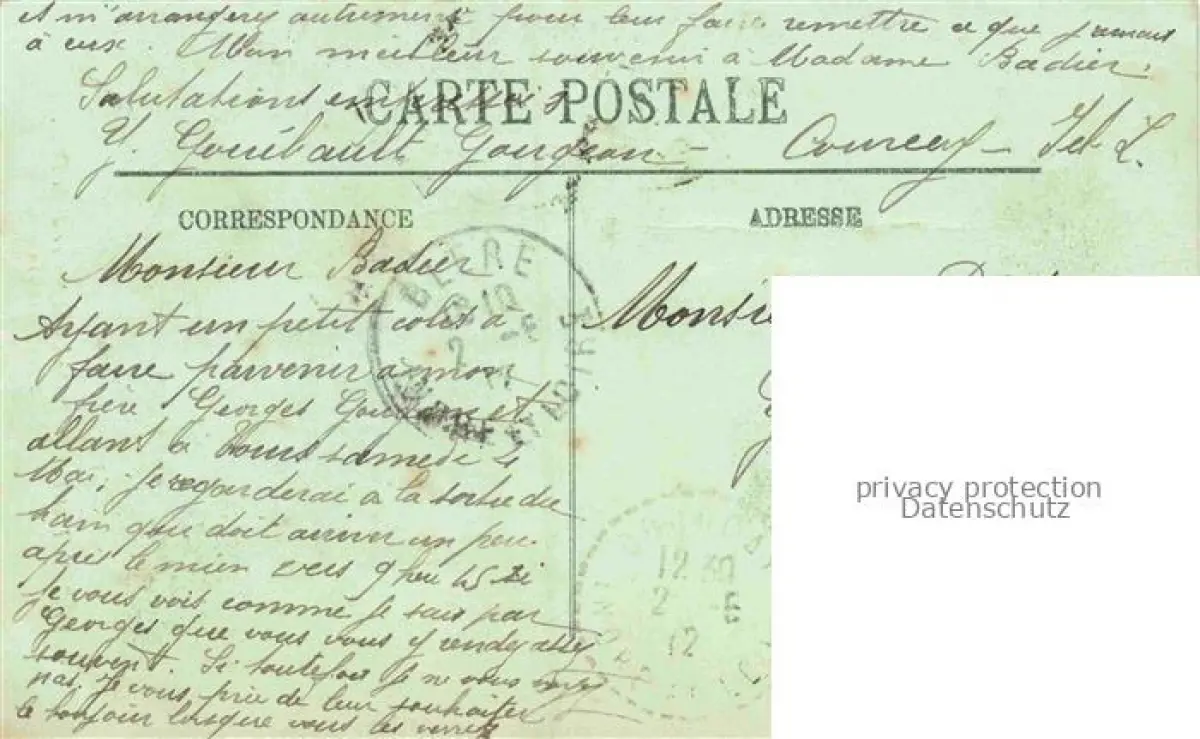 et m'arranger autrement pour leur faire remettre ce que j'aurais
à eux. Mon meilleur souvenir à Madame Badier.
Salutations
CARTE POSTALE
Y. Gouibault Gourgeon - Courcay - I et L.
CORRESPONDANCE
ADRESSE
Monsieur Badier.
Ayant un petit colis à
faire parvenir à mon
frère Georges et
allant à Tours samedi 4
Mai, je regarderai à la sortie du
train qui doit arriver un peu
après le mien vers 9 heu 45 si
je vous vois comme je sais par
Georges que vous vous y rendez assez
souvent. Si toutefois je ne vous
pas, je vous prie de leur souhaiter
le bonjour lorsque vous les verrez
BLÉRÉ
2 -5
12
INDRE ET LOIRE
Monsie
12 30
2 -5
12
privacy protection
Datenschutz